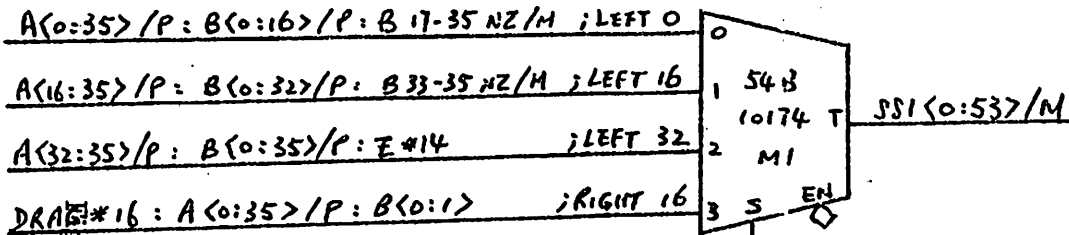 A<0:35>/P : B<0:16>/P : B 17-35 NZ/M ;LEFT 0
A<16:35>/P : B<0:32>/P : B 33-35 NZ/M ;LEFT 16
A<32:35>/P : B<0:35>/P : Z *14 ;LEFT 32
: A<0:35>/P : B<0:1> ;RIGHT 16
0
1
2
3
54 B
10174
M1
T
S
EN
SSI<0:53>/M